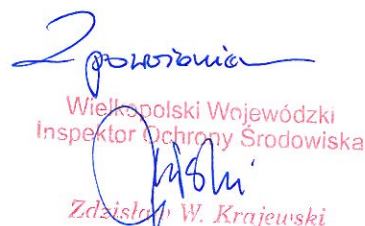 Z poważaniem
Wielkopolski Wojewódzki
Inspektor Ochrony Środowiska
Zdzisław W. Krajewski